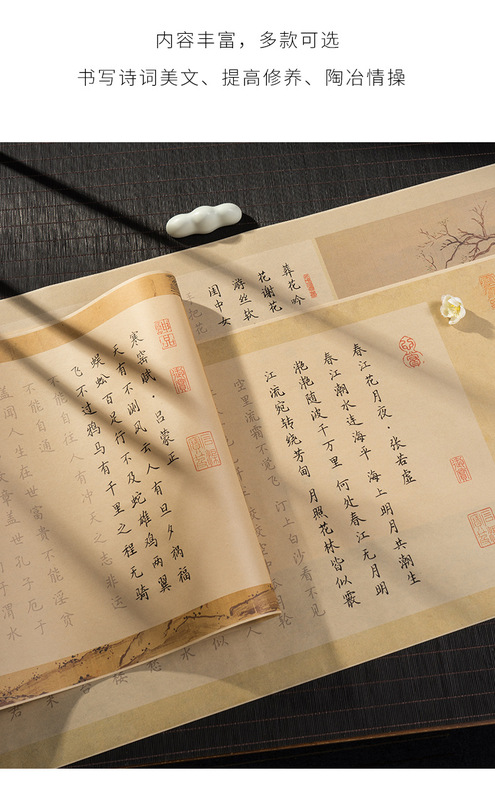 内容丰富，多款可选
书写诗词美文、提高修养、陶冶情操
葬花吟
花谢花
游丝软
闺中女
把花
春江花月夜·张若虚
春江潮水连海平 海上明月共潮生
滟滟随波千万里 何处春江无月明
江流宛转绕芳甸 月照花林皆似霰
空里流霜不觉飞 汀上白沙看不见
寒窑赋·吕蒙正
天有不测风云人有旦夕祸福
蜈蚣百足行不及蛇雄鸡两翼
飞不过鸦马有千里之程无骑
不能自往人有冲天之志非运
不能自通
盖闻人生在世富贵不能淫贫
章盖世孔子厄于
于渭水